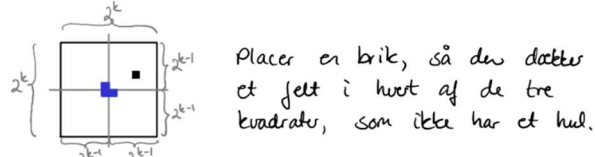 2^k
2^k
2^{k-1}
2^{k-1}
2^{k-1} 2^{k-1}
Placer en brik, så den dækker
et felt i hvert af de tre
kvadrater, som ikke har et hul.